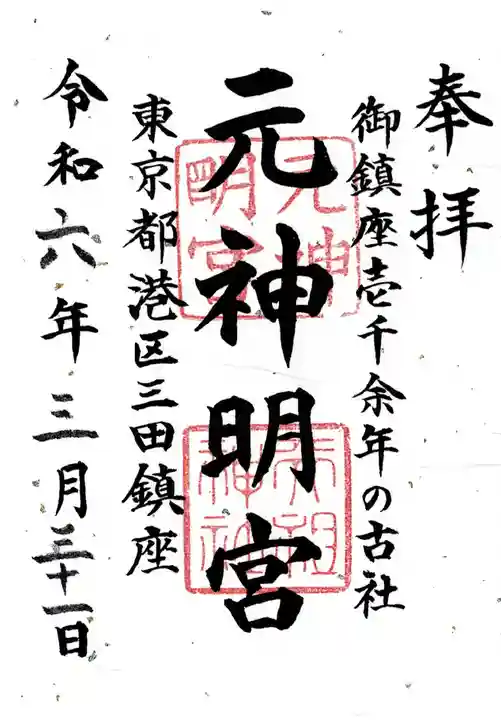 奉拝
御鎮座壱千余年の古社
元神明宮
元神明宮
天祖神社
東京都港区三田鎮座
令和六年三月三十一日